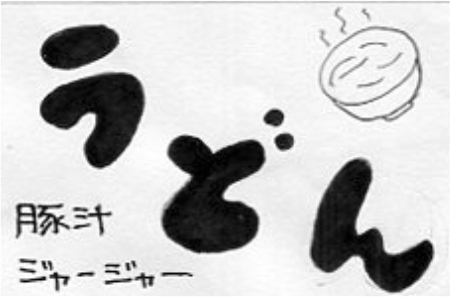 うどん
豚汁
ジャージャー